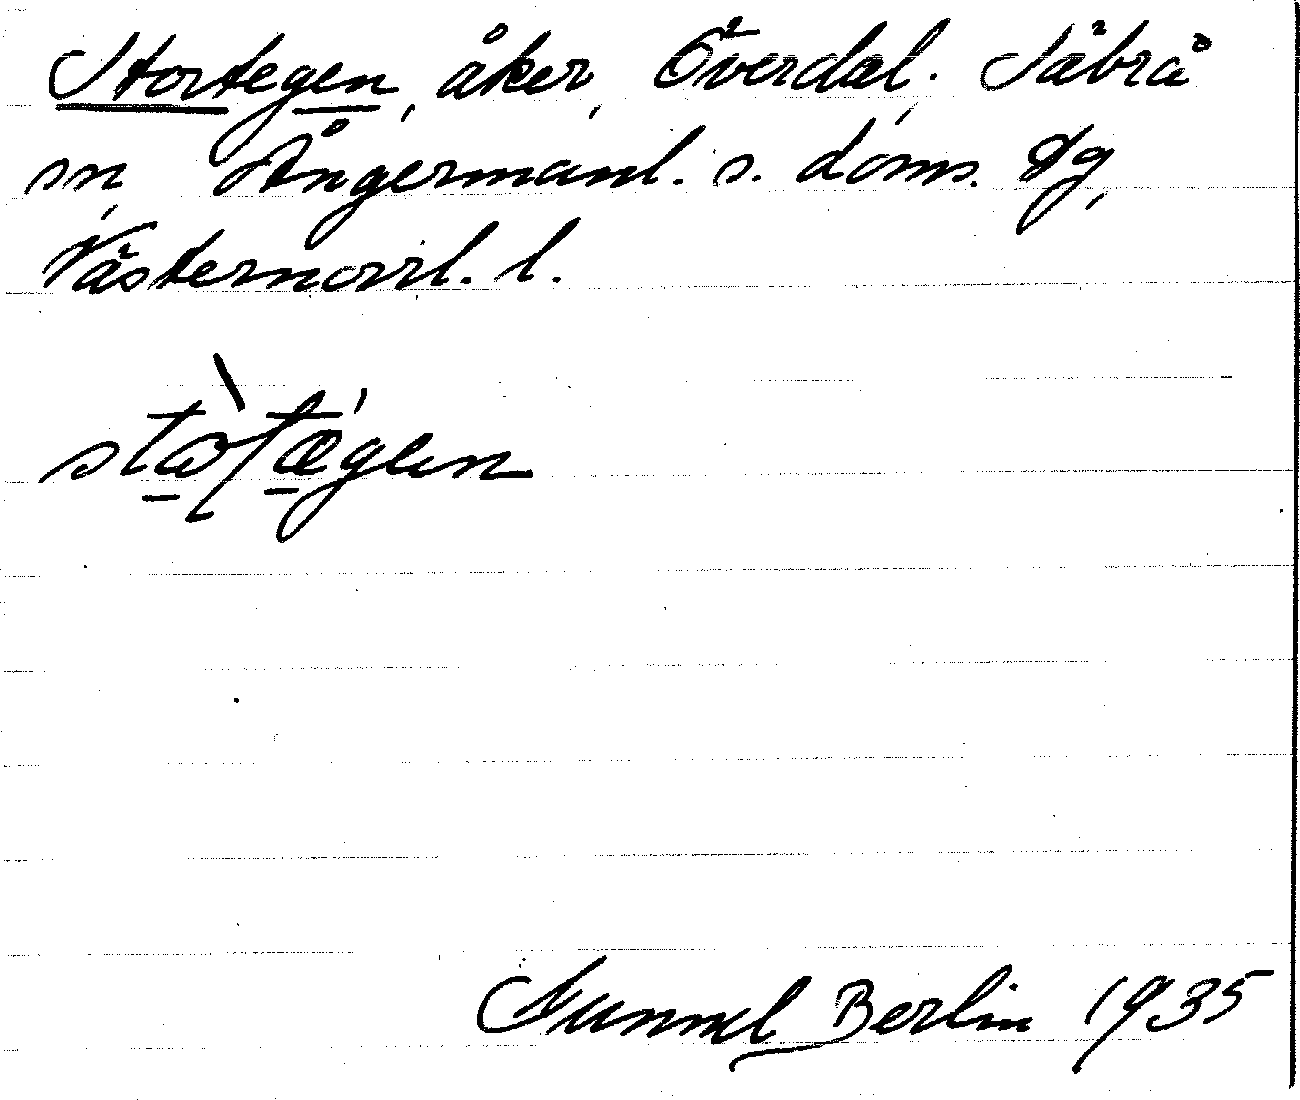 Stortegen, åker, Överdal, Säbrå
sn, Ångermanl. s. doms. sg,
Västernorrl. l.
Berlin 1935